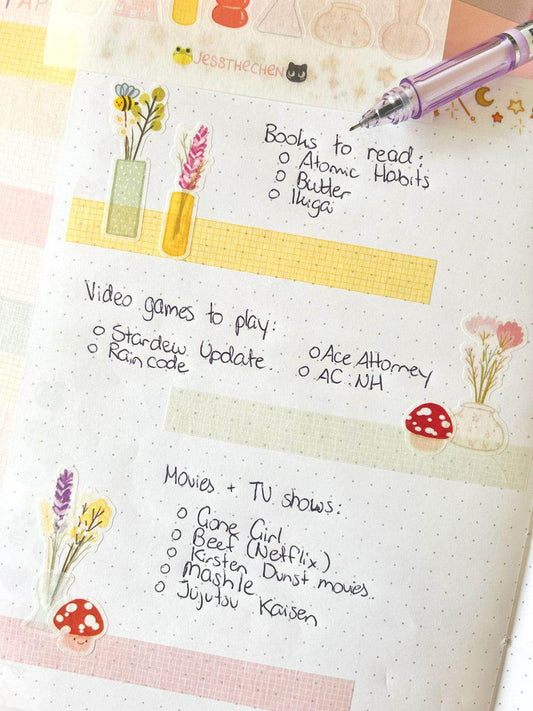 JESSTHECHEN
Books to read:
Atomic Habits
Butter
Ikigai
Video games to play:
Stardew Update.
Rain code
Ace Attorney
AC:NH
Movies + TV shows:
Gone Girl
Beef (Netflix)
Kirsten Dunst movies.
mashle
Jujutsu Kaisen